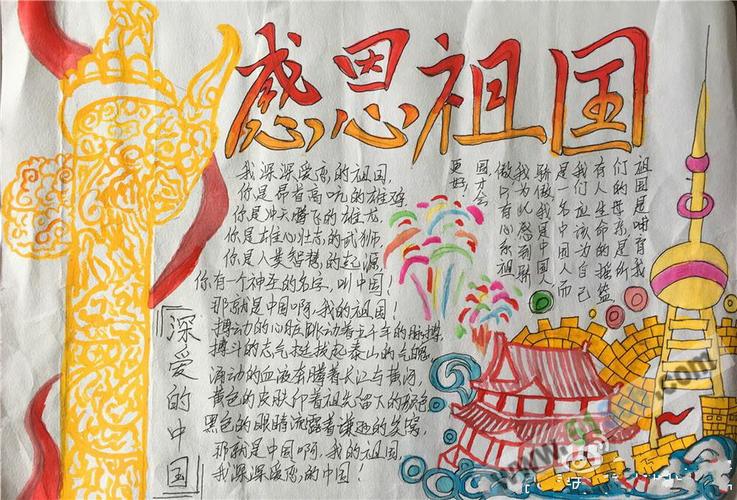 感恩祖国
我深深爱恋的祖国,
你是昂首高吭的雄鸡
你是冲天腾飞的雄龙
你是雄心壮志的武狮
你是人类智慧的起源,
你有一个神圣的名字,叫中国!
那就是中国啊,我的祖国!
搏动的心脏跳动着五千年的脉搏,
搏斗的志气挺拔起泰山的气魄,
涌动的血液奔腾着长江与黄河,
黄色的皮肤印着祖先留下的颜色,
黑色的眼睛流露着谦逊的笑窝,
那就是中国啊,我的祖国,
我深深爱恋的中国!
深爱的中国
祖国是哺育我
们的母亲,是所
有人生命的摇篮
我们应该为自己
是一名中国人而
骄傲,我是中国人
我为此感到骄
傲只有心系祖
国才会
更好!